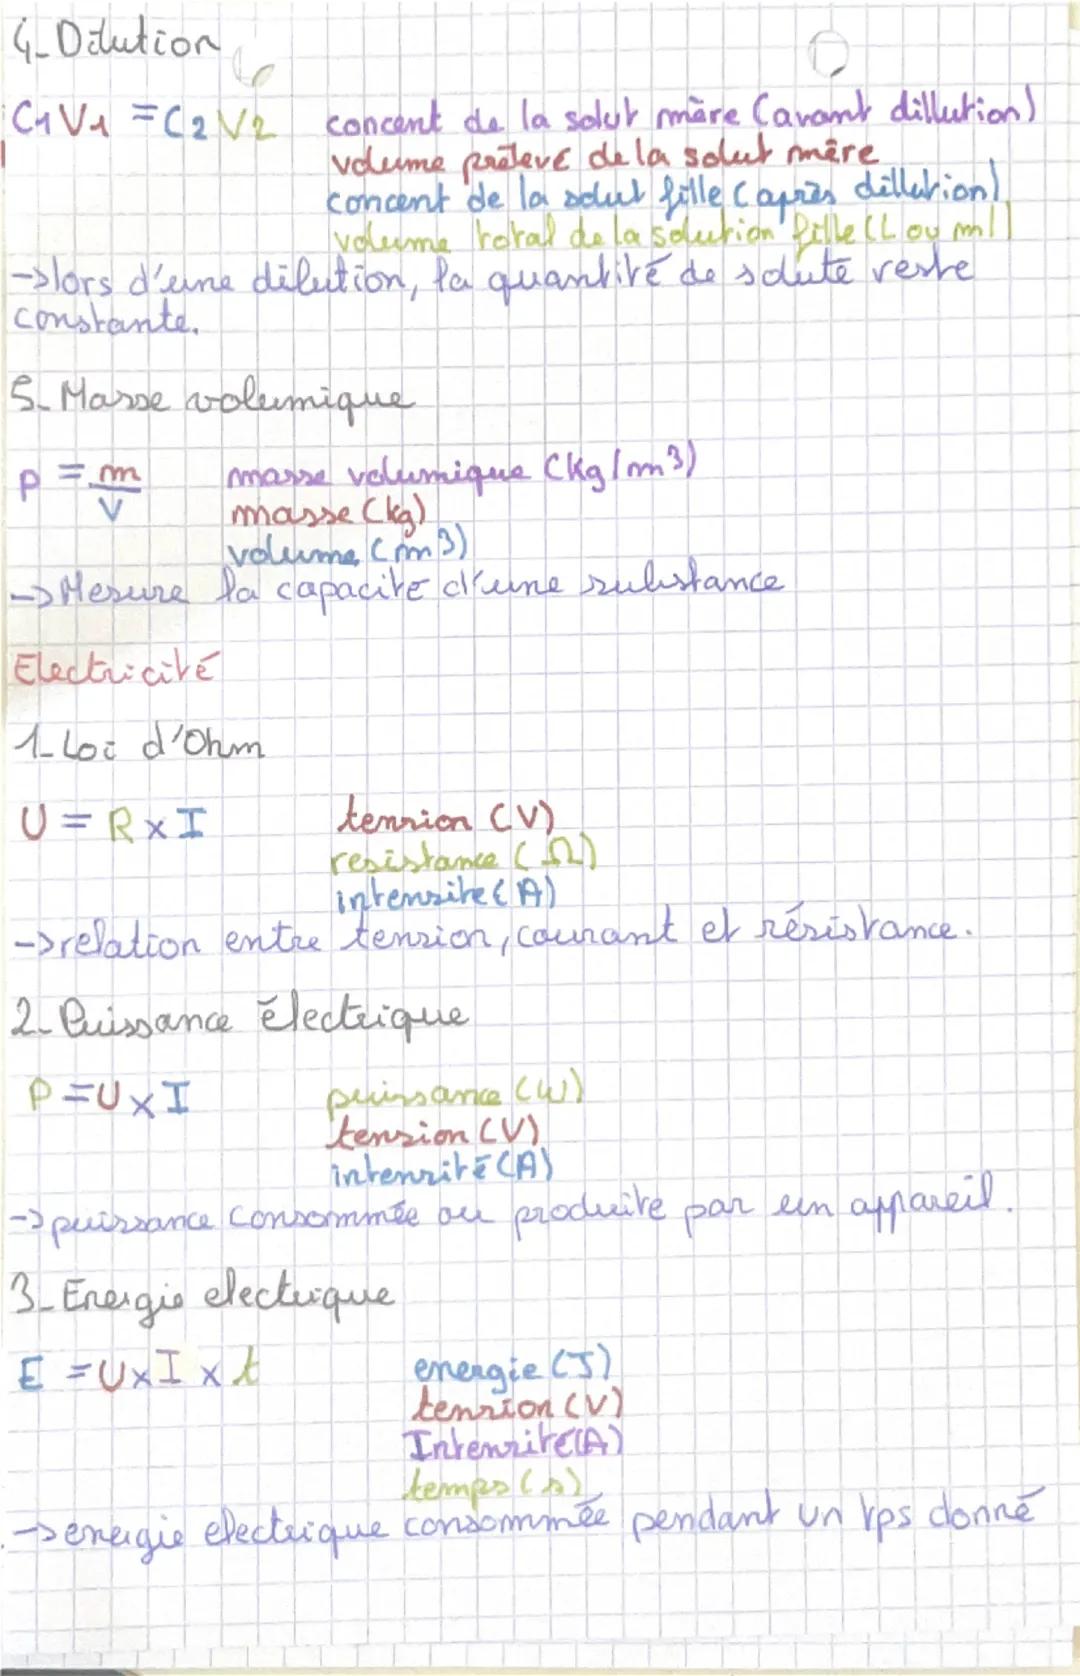 4_Dilution
C1V1 = C2V2 concent de la solut mère (avant dillution)
volume prélevé de la solut mère
concent de la solut fille (après dillution)
volume total de la solution fille (L ou ml)
->lors d'une dilution, la quantité de soluté reste
constante.
5_Masse volumique
ρ = m/V masse volumique (kg/m3)
masse (kg)
volume (m3)
->Mesure la capacité d'une substance
Electricité
1_Loi d'Ohm
U = R x I tension (V)
resistance (Ω)
intensite (A)
->relation entre tension, courant et résistance.
2_Puissance électrique
P = U x I puissance (W)
tension (V)
intensité (A)
->puissance consommée ou produite par un appareil.
3_Energie electrique
E = U x I x t energie (J)
tension (V)
Intensité (A)
temps (s)
->energie electrique consommée pendant un tps donné